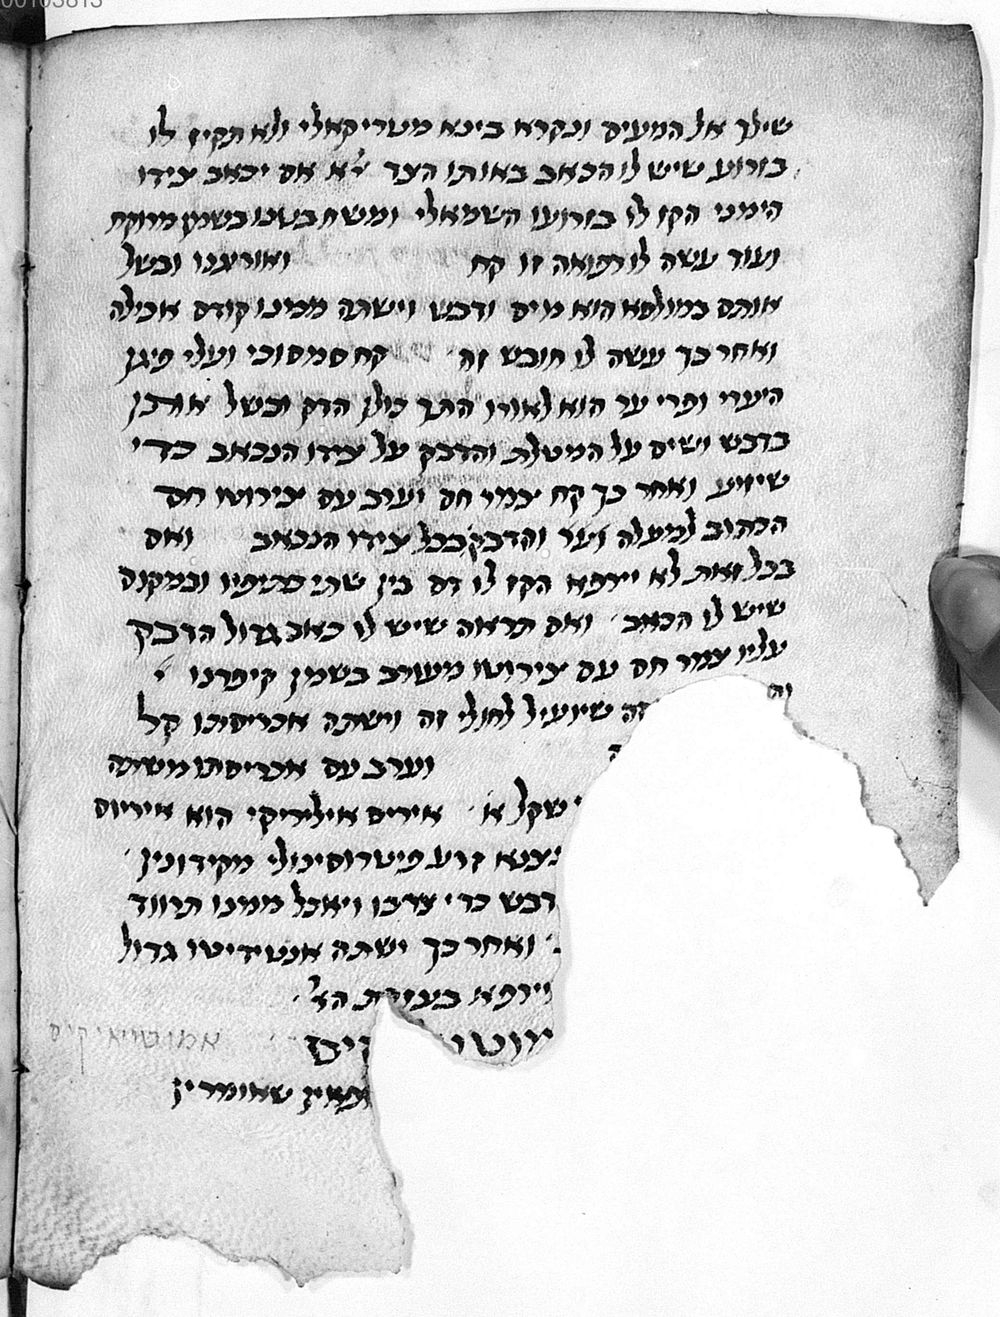 00103813
שילך אל המעים ונקרא בינא מטריקאלי ולא תקיז לו
בזרוע שיש לו הכאב באותו הצד אם יכאב צידו
הימני הקז לו בזרועו השמאלי ומשח בטנו בשמן מרוקח
ועוד עשה לו רפואה זו קח ואוריגנו ובשל
אותם במולסא הוא מים ודבש וישתה ממינו קודם אכילה
ואחר כך עשה לו חובש זה קח סמסוכי ועלי פיגן
היערי ופרי ער הוא לאורו התך כולן הדק ובשל אותן
בדבש ושים על המטלת והדבק על צידו הנכאב כדי
שיזיע ואחר כך קח צמר חם וערב עם צירוטו חם
הכתוב למעלה והדבק בכל צידו הנכאב ואם
בכל זאת לא יירפא הקז לו דם בין שתי כתיפיו ובמקום
שיש לו הכאב ואם תראה שיש לו כאב גדול הדבק
עליו צמר חם עם צירוטו מעורב בשמן קיפרנו
זה שיועיל לחולי זה וישתה אבריסתו קל
וערב עם אבריסתו משתה
שקל א איריס איליריקי הוא איריוס
זרע פיטרוסינולי מקידונין
דבש כדי צרכו ויאכל ממנו תרווד
ואחר כך ישתה אנטידיטו גדול
וירפא בעזרת הצ'
שאומרין